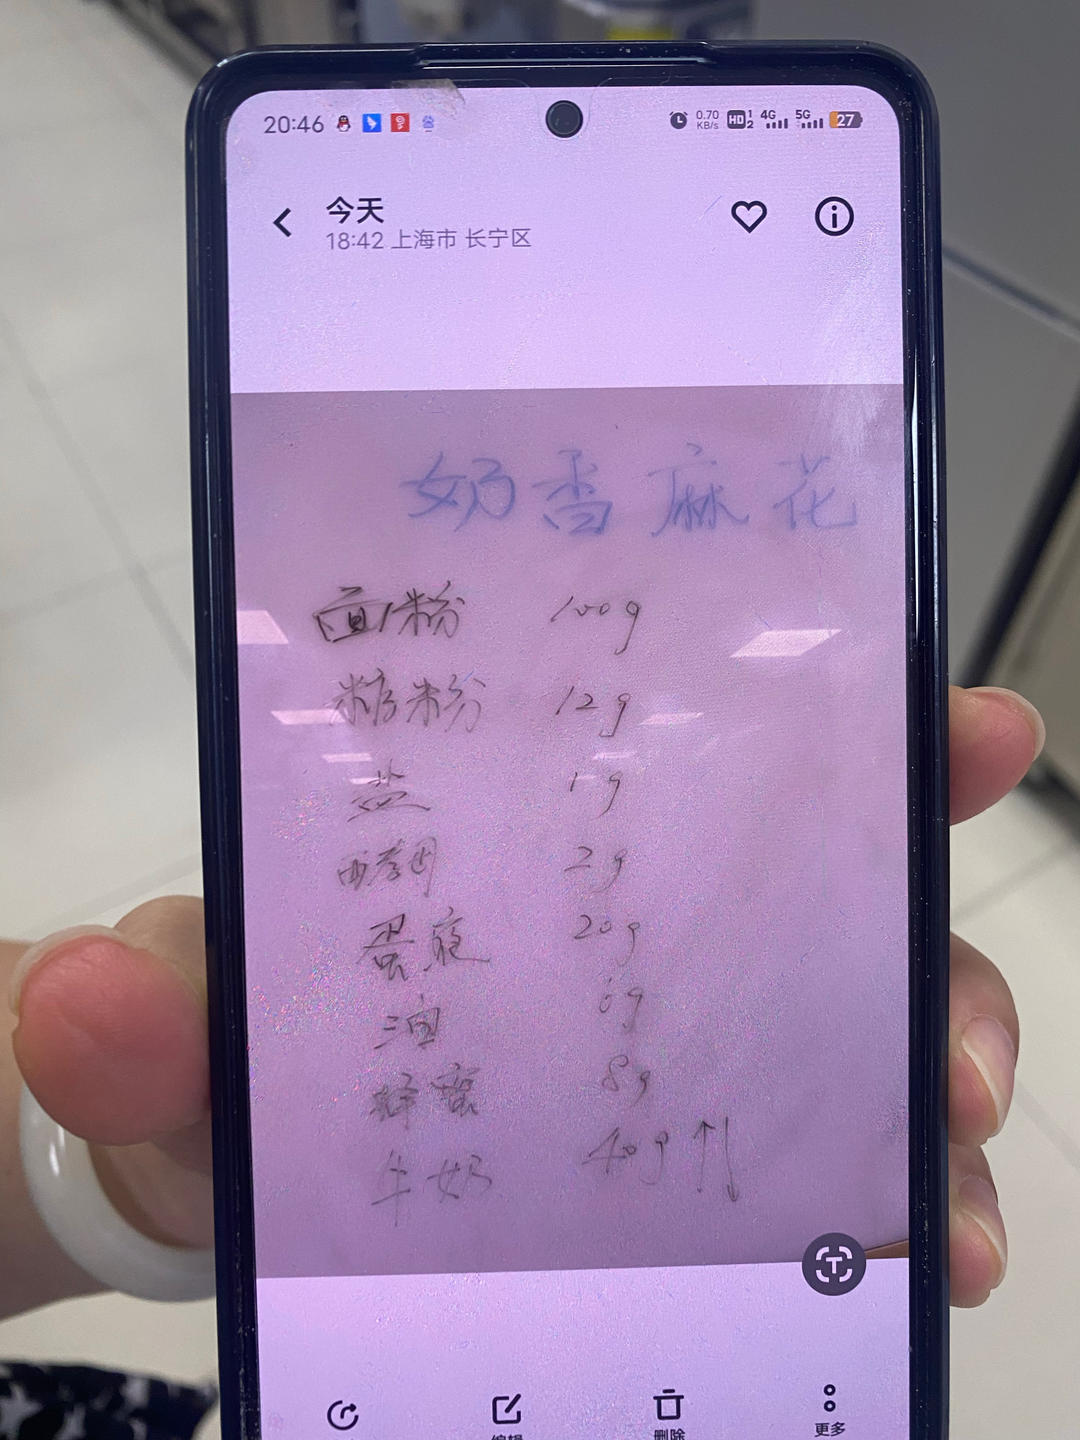 20:46 0.70 KB/s HD 1 2 4G 5G 27
今天
18:42 上海市 长宁区
奶香麻花
面粉 100g
糖粉 12g
盐 1g
酵母 2g
蛋液 20g
油 6g
蜂蜜 8g
牛奶 40g ↑↓
T
编辑 删除 更多